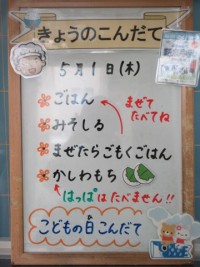 きょうのこんだて
5月1日(木)
ごはん
まぜて
たべてね
みそしる
まぜたらごもくごはん
かしわもち
はっぱはたべません!!
こどもの日こんだて